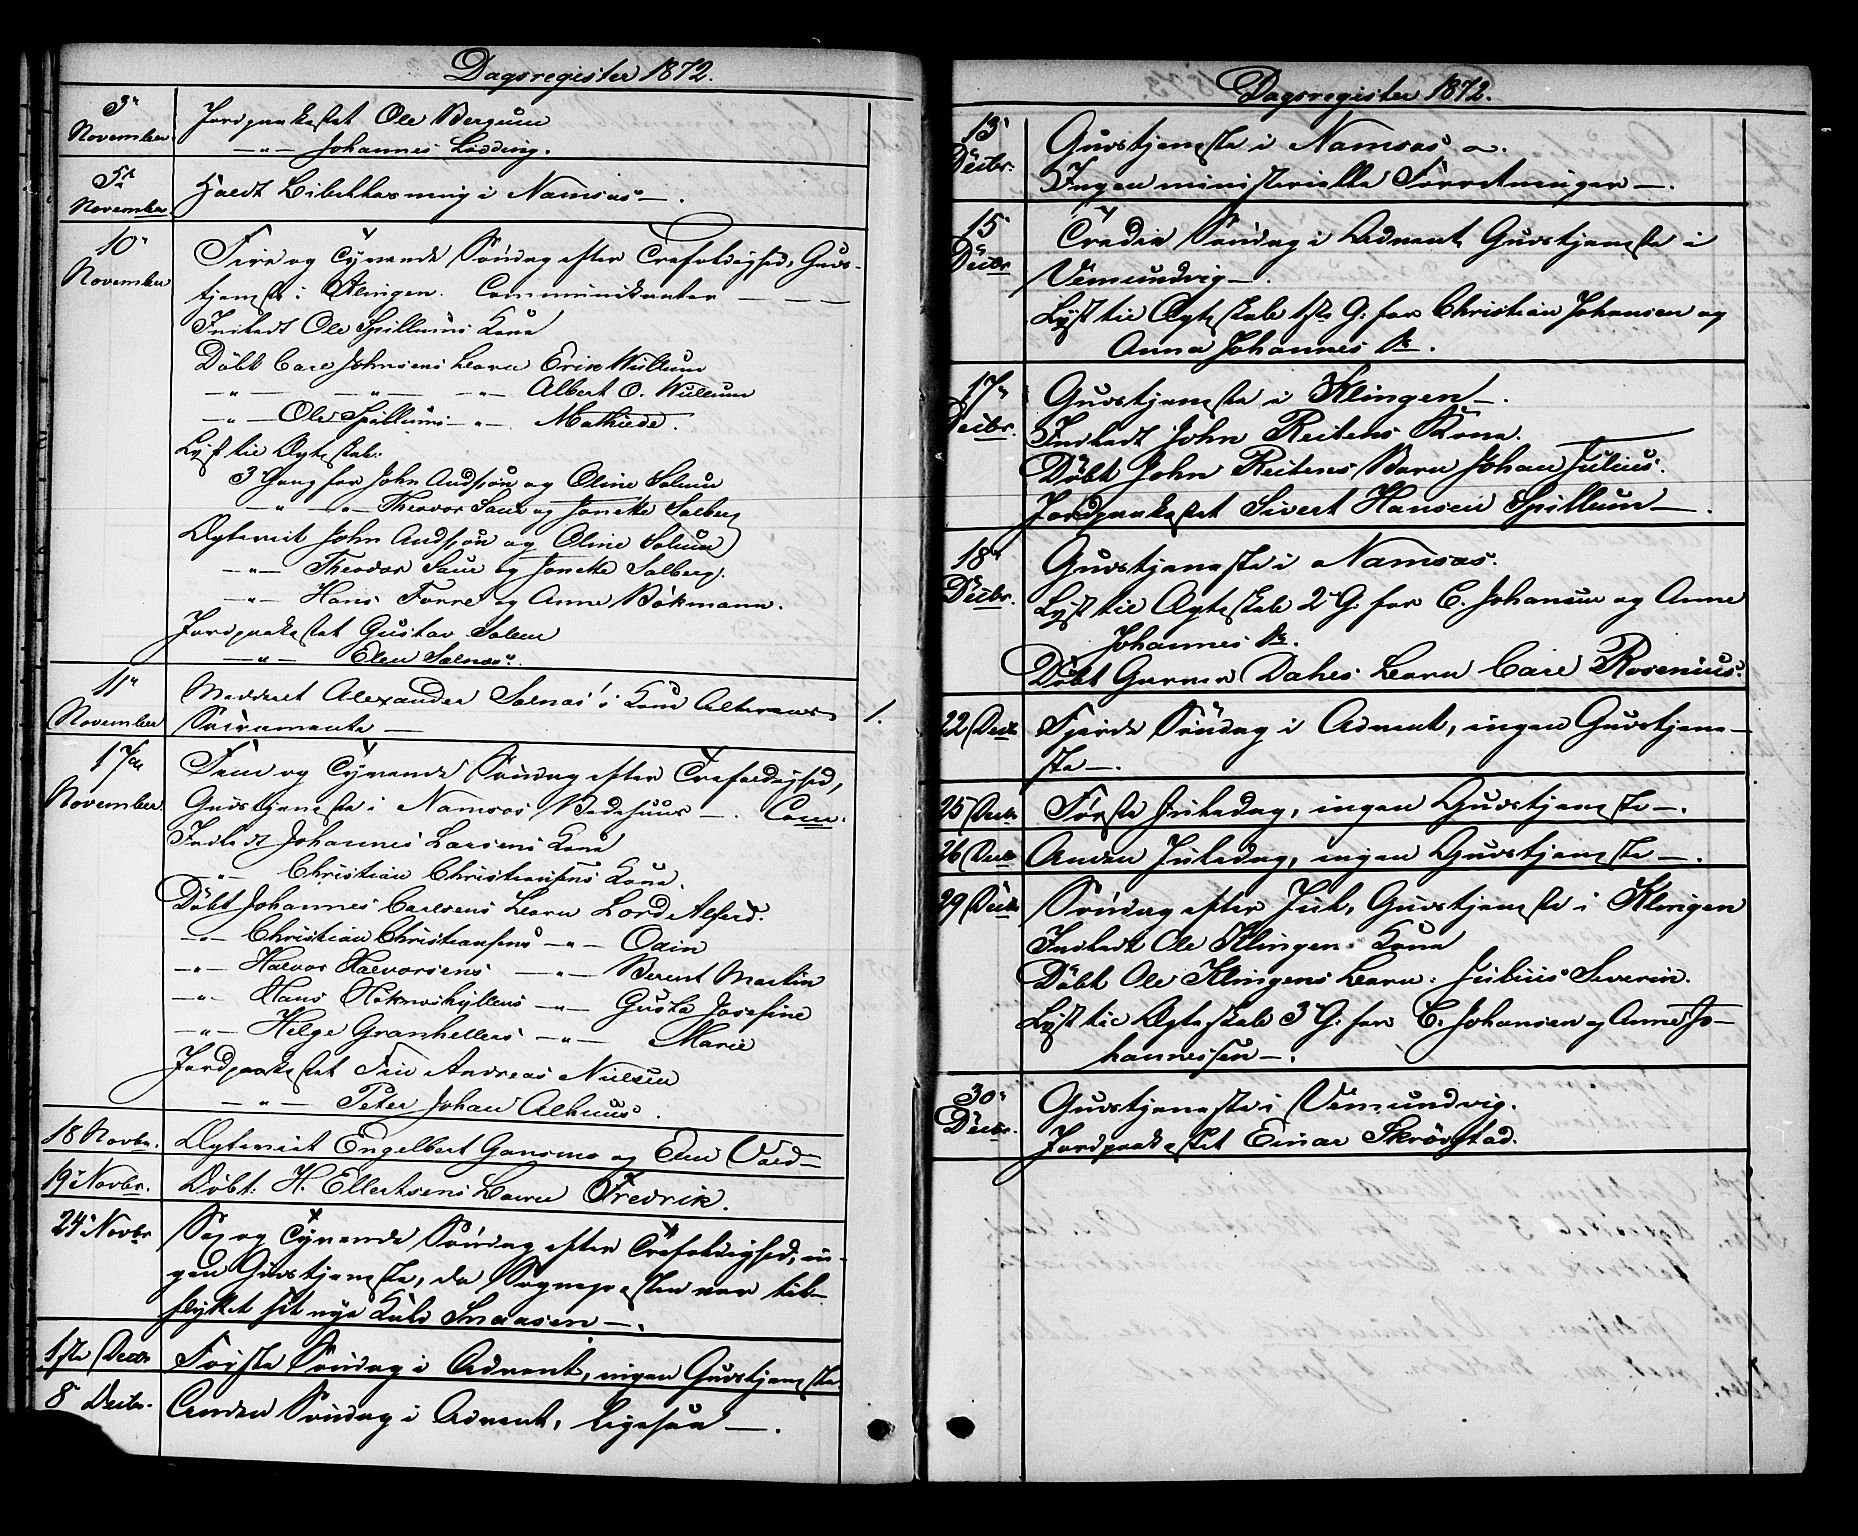 Dagsregister 1872.
3
November
Jordpaakastet Ole Bergum
—"— Johannes Lødding.
5te
November
Holdt Bibellæsning i Namsos —.
10
November
Fire og Tyvende Søndag efter Trefoldighed, Guds-
tjeneste i Klingen. Communikanter — — —
Indledt Ole Spillums Kone
Döbt Carl Johnsens Barn Erik Wullum
—"— —"— —"— Albert O. Wullum
—"— Ole Spillums —"— Mathilde.
Lyst til Ægteskab:
3 Gang for John Andsson og Oline Solum
—"— —"— Theodor Saur og Jonette Solberg
Ægteviet John Andsson og Oline Solum
—"— Theodor Saur og Jonette Solberg.
—"— Hans Forre og Anne Bökmann.
Jordpaakastet Gustav Solem
—"— Elen Selnæs.
11
November
Meddelt Alexander Selnæs's Kone Alterens
Sacramente —
1.
17de
November
Fem og Tyvende Søndag efter Trefoldighed,
Gudstjeneste i Namsos Bedehuus —. Com.
Indledt Johannes Larsens Kone
—"— Christian Christiansens Kone.
Döbt Johannes Carlsens Barn Lord Alfred.
—"— Christian Christiansens —"— Odin
—"— Halvor Halvorsens —"— Berent Martin
—"— Hans Höknæshyllens —"— Gusta Josefine
—"— Helge Granhellers —"— Marie
Jordpaakastet Tin Andreas Nielsen
—"— Peter Johan Alhuus.
18 Novbr.
Ægteviet Engelbert Gansmo og Elen Vold—
19 Novbr.
Döbt: H. Ellertsens Barn Fredrik.
24 Novbr
Sex og Tyvende Søndag efter Trefoldighed, in-
gen Gudstjeneste, da Sognepresten var til-
flyttet sit nye Kald Snaasen —.
1ste Decbr
Første Søndag i Advent, ingen Gudstjeneste
8 Decbr.
Anden Søndag i Advent, Ligesaa —.
Dagsregister 1872.
13
Decbr.
Gudstjeneste i Namsos —.
Ingen ministerielle Forretninger —.
15
Decbr
Tredie Søndag i Advent, Gudstjeneste i
Vemundvig —.
Lyst til Ægteskab 1ste G. for Christian Johansen og
Anna Johannes Dr.
17
Decbr.
Gudstjeneste i Klingen —.
Indledt John Reitens Kone.
Döbt John Reitens Barn Johan Julius.
Jordpaakastet Sivert Hansen Spillum —.
18
Decbr.
Gudstjeneste i Namsos.
Lyst til Ægteskab 2 G. for C. Johansen og Anne
Johannes Dr.
Döbt Garver Dahls Barn Carl Rosenius.
22 Decbr
Fjerde Søndag i Advent, ingen Gudstjene-
ste —.
25 Decbr
Første Juledag, ingen Gudstjeneste —.
26 Decbr
Anden Juledag, ingen Gudstjeneste —.
29 Decbr
Søndag efter Jul, Gudstjeneste i Klingen
Indledt Ole Klingens Kone
Döbt Ole Klingens Barn: Julius Severin.
Lyst til Ægteskab 3 G. for C. Johansen og Anne Jo-
hannessen —.
30
Decbr.
Gudstjeneste i Vemundvig.
Jordpaakastet Einar Skrøvstad.